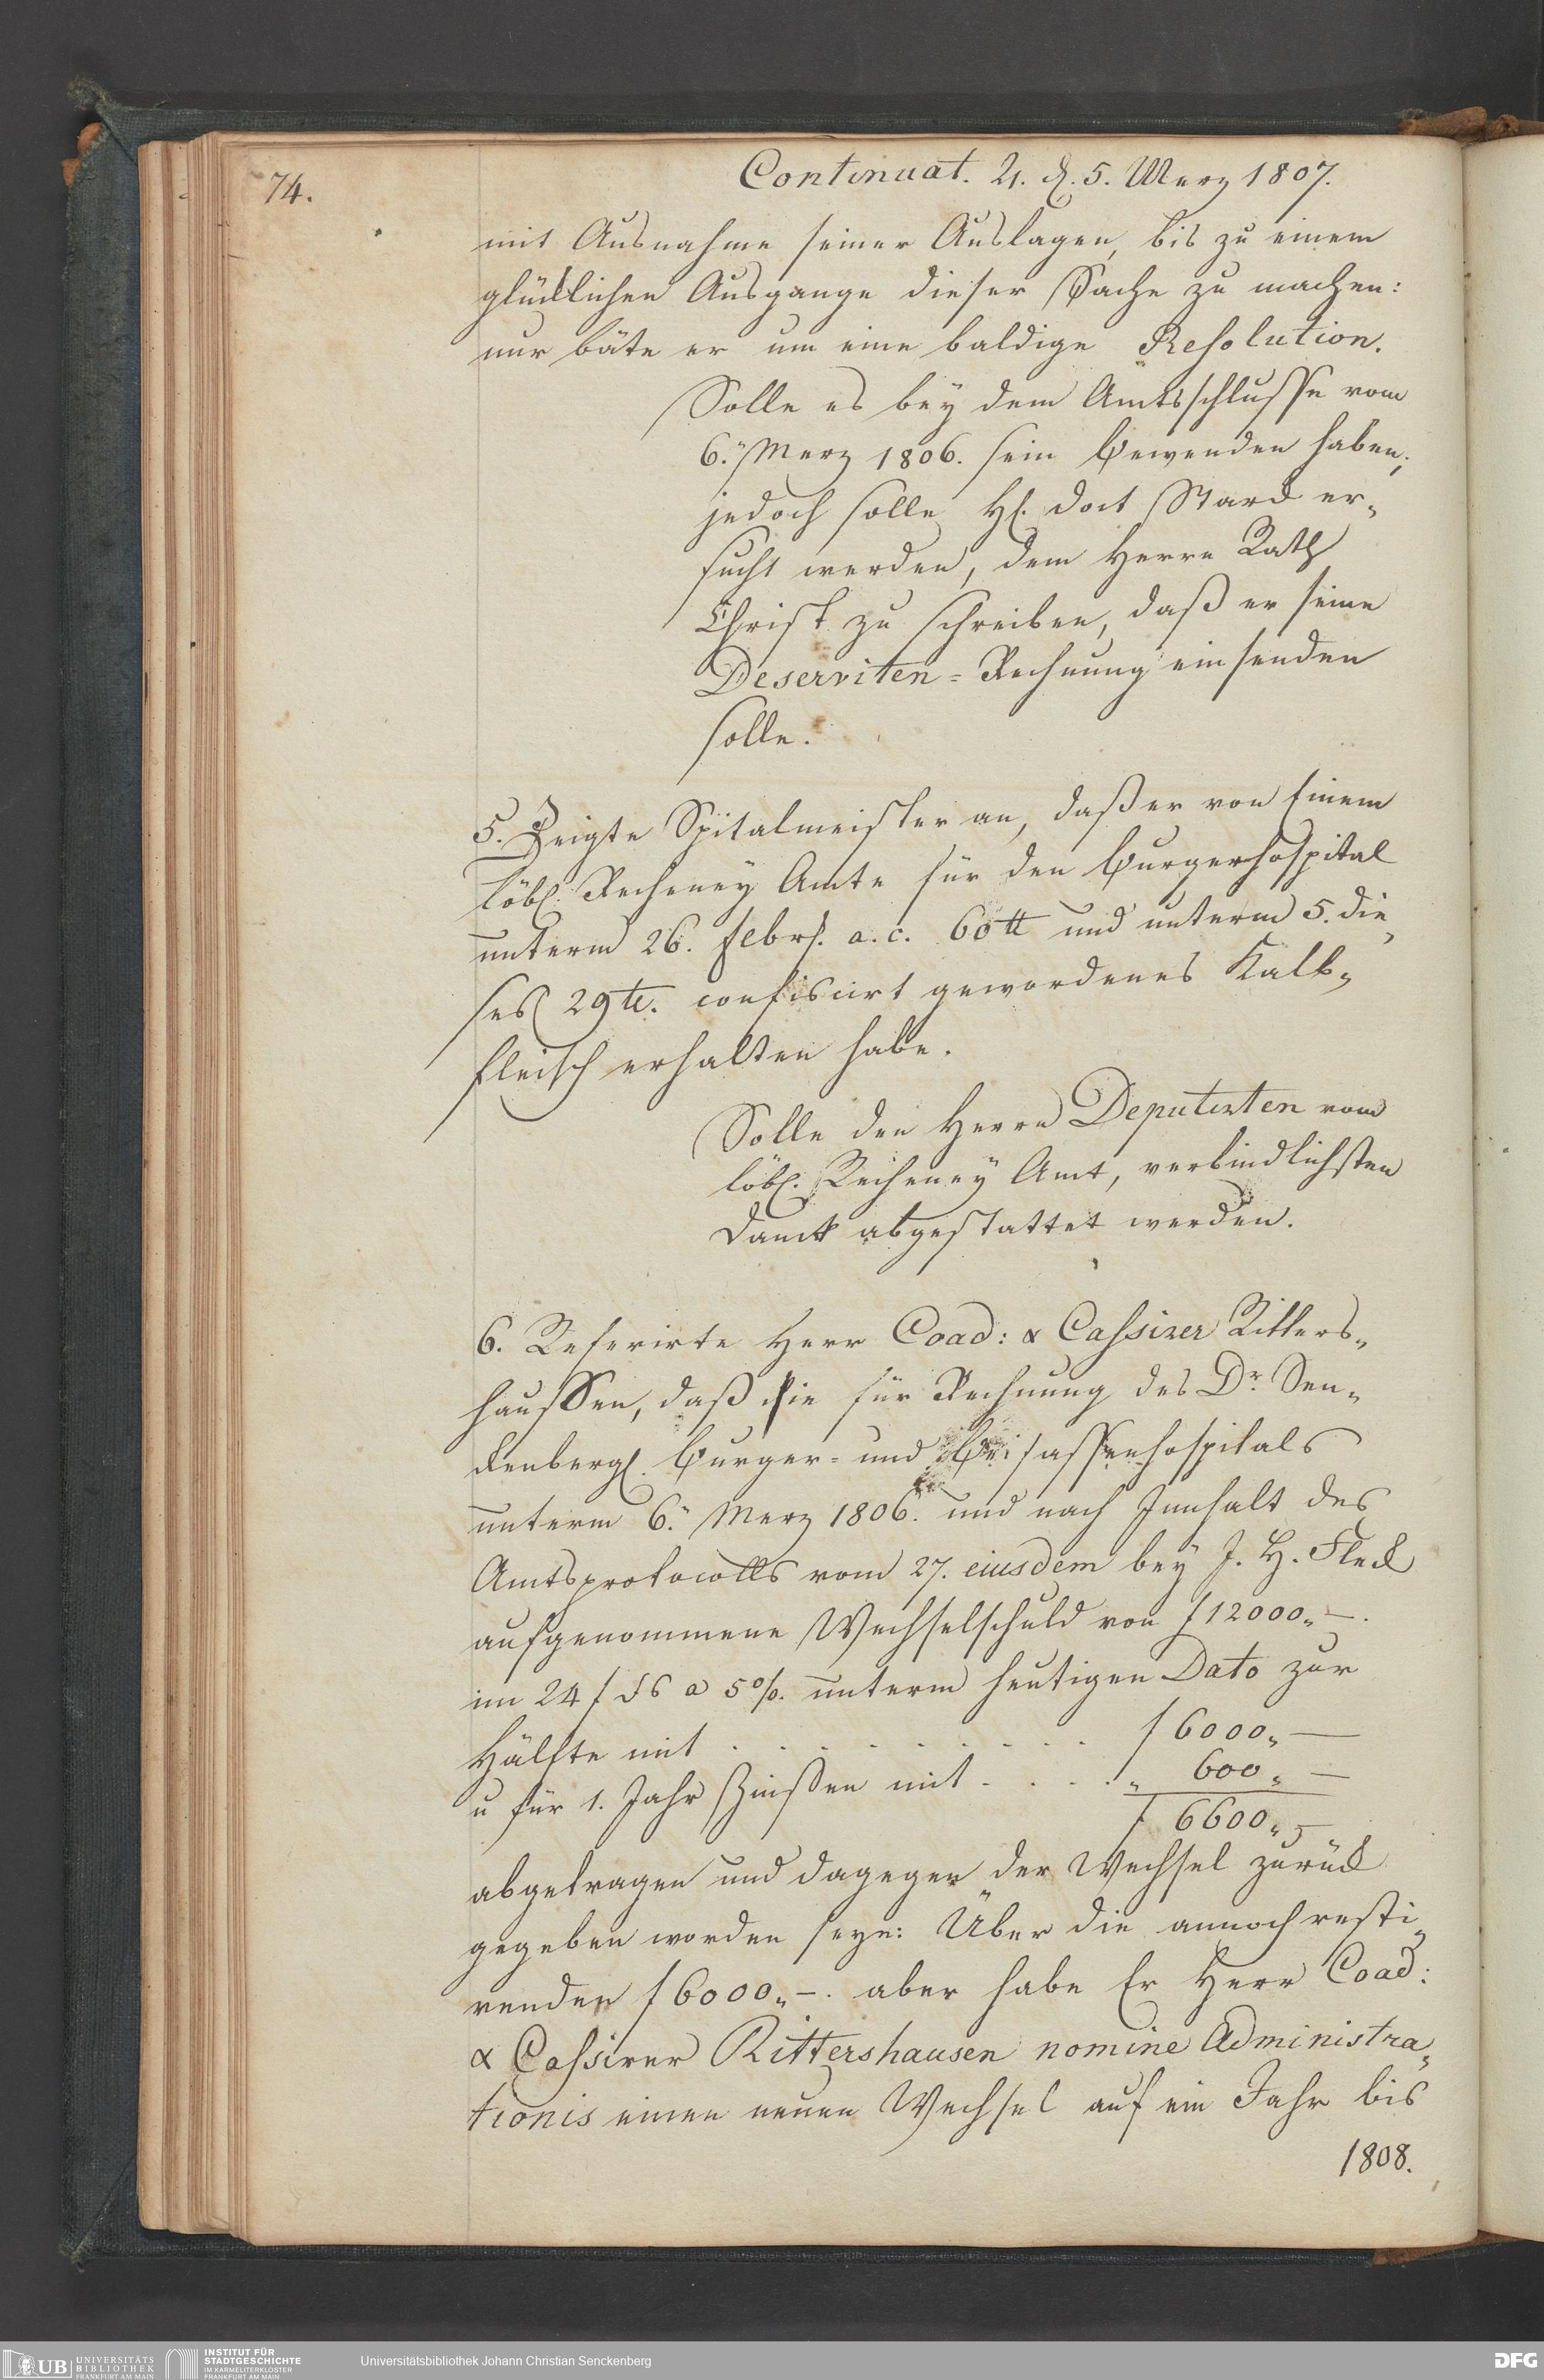 74.
Continuat. 21. d. 5. Merz 1807.
mit Ausnahme seiner Auslagen, bis zu einem
glücklichen Ausgange dieser Sache zu machen:
nur bäte er um eine baldige Resolution.
Solle es bey dem Amtsschlusse vom
6. Merz 1806. sein Bewenden haben;
jedoch solle H. doct Starck er-
sucht werden, dem Herrn Rath
Christ zu schreiben, daß er seine
Deserviten-Rechnung einsenden
solle.
5. Zeigte Spitalmeister an, daß er von Einem
löbl. Recheney Amte für den Burgerhospital
unterm 26. Febr. a. c. 60 ℔ und unterm 5. die-
ses 29 ℔. confiscirt gewordenes Kalb-
fleisch erhalten habe.
Solle den Herrn Deputirten vom
löbl. Recheney Amt, verbindlichsten
Danck abgestattet werden.
6. Referirte Herr Coad: & Cassirer Ritters-
haussen, daß die für Rechnung des Dr. Sen-
ckenbergl. Burger- und Beisassenhospitals
unterm 6. Merz 1806. und nach Innhalt des
Amtsprotocolls vom 27. eiusdem bey J. H. Fleck
aufgenommene Wechselschuld von f 12000.„ —.
im 24 f  a 5 %. unterm heutigen Dato zur
Hälfte mit . . . . . . . . . . f 6000„ —
u für 1. Jahr Zinßen mit . . . . „ 600„ —
f 6600„ —
abgetragen und dagegen der Wechsel zurück
gegeben worden seye: Über die annoch resti-
renden f 6000„ —. aber habe Er Herr Coad:
& Cassirer Rittershausen nomine Administra-
tionis einen neuen Wechsel auf ein Jahr bis
1808.
UB UNIVERSITÄTS
BIBLIOTHEK
FRANKFURT AM MAIN
INSTITUT FÜR
STADTGESCHICHTE
IM KARMELITERKLOSTER
FRANKFURT AM MAIN
Universitätsbibliothek Johann Christian Senckenberg
DFG